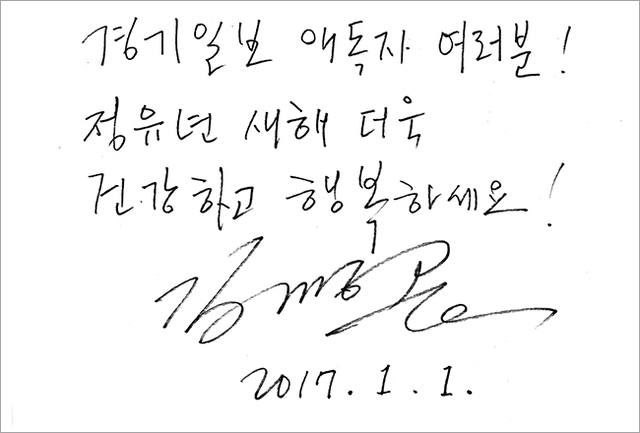 경기일보 애독자 여러분!
정유년 새해 더욱
건강하고 행복하세요!
2017. 1. 1.